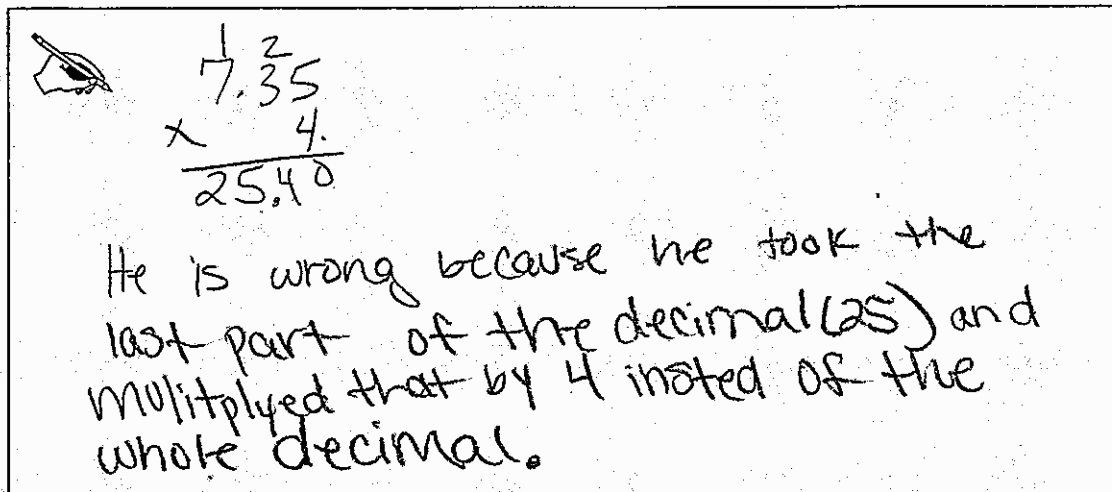 1 2
7.35
x 4.
25.40
He is wrong because he took the
last part of the decimal (25) and
mulitplyed that by 4 insted of the
whole decimal.